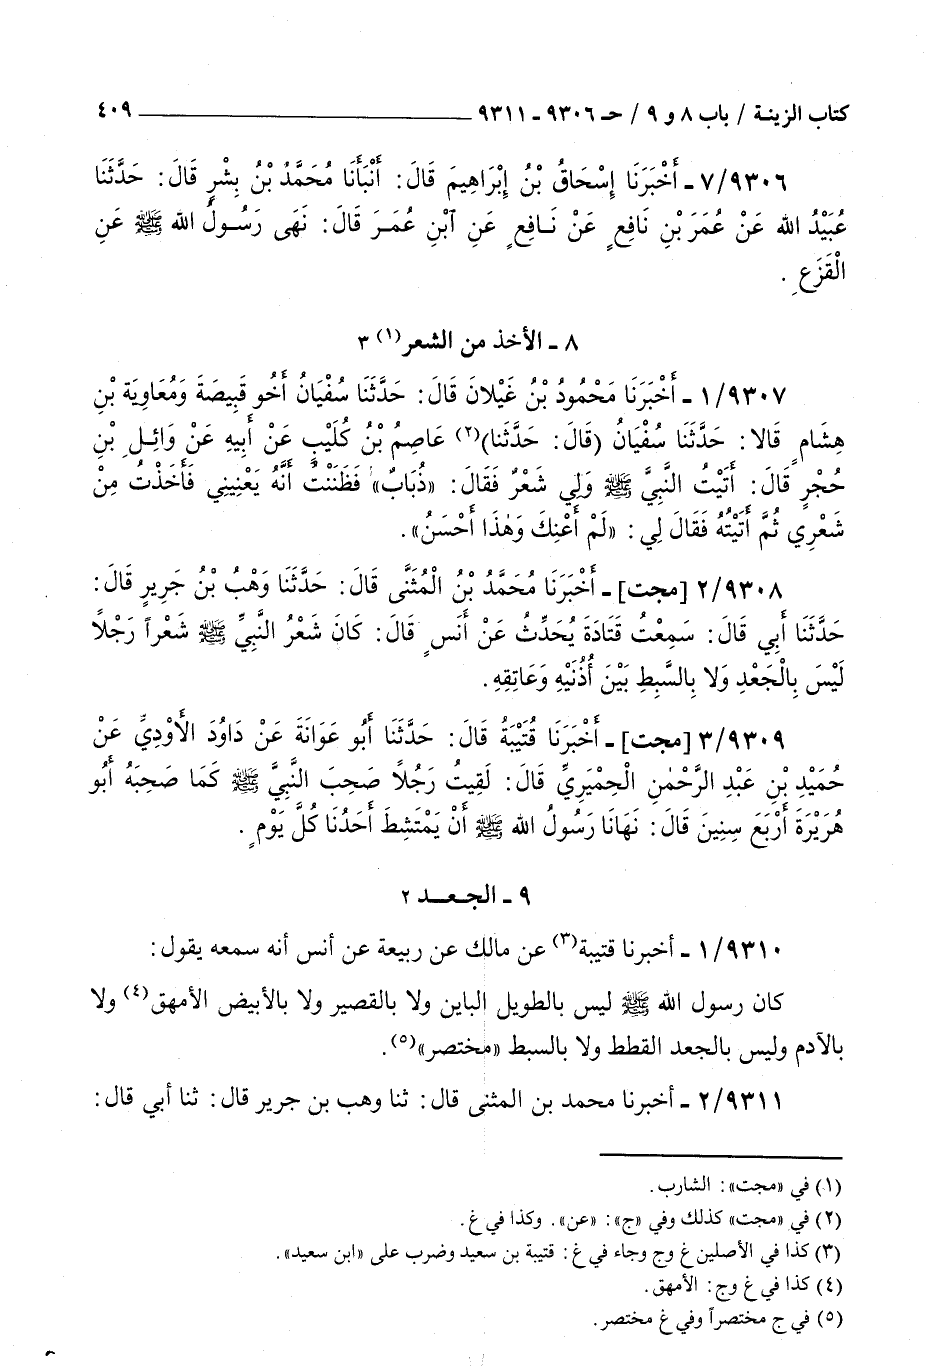 كتاب الزينة / باب ٨ و ٩ / حـ ٩٣٠٦ ـ ٩٣١١ ٤٠٩
٧/٩٣٠٦ ـ أَخْبَرَنَا إِسْحَاقُ بْنُ إِبْرَاهِيمَ قَالَ: أَنْبَأَنَا مُحَمَّدُ بْنُ بِشْرٍ قَالَ: حَدَّثَنَا
عُبَيْدُ الله عَنْ عُمَرَ بْنِ نَافِعٍ عَنْ نَـافِعٍ عَنِ ٱبْنِ عُمَـرَ قَالَ: نَهَى رَسُـولُ الله ﷺ عَنِ
الْقَزَعِ.
٨ ـ الأخذ من الشعر(١) ٣
١/٩٣٠٧ ـ أَخْبَرَنَا مَحْمُودُ بْنُ غَيْلانَ قَالَ: حَدَّثَنَا سُفْيَانُ أَخُو قَبِيصَةَ وَمُعَاوِيَة بْنِ
هِشَامٍ قَالا: حَدَّثَنَا سُفْيَانُ (قَالَ: حَدَّثنا)(٢) عَاصِمُ بْنُ كُلَيْبٍ عَنْ أَبِيهِ عَنْ وَائِـلِ بْنِ
حُجْرٍ قَالَ: أَتَيْتُ النَّبِيَّ ﷺ وَلِي شَعْرٌ فَقَالَ: «ذُبَابٌ» فَظَنَنْتُ أَنَّهُ يَعْنِينِي فَأَخَذْتُ مِنْ
شَعْرِي ثُمَّ أَتَيْتُهُ فَقَالَ لِي: «لَمْ أَعْنِكَ وَهٰذَا أَحْسَنُ».
٢/٩٣٠٨ [مجت] ـ أَخْبَرَنَا مُحَمَّدُ بْنُ الْمُثَنَّى قَالَ: حَدَّثَنَا وَهْبُ بْنُ جَرِيرٍ قَالَ:
حَدَّثَنَا أَبِي قَالَ: سَمِعْتُ قَتَادَةَ يُحَدِّثُ عَنْ أَنَسٍ قَالَ: كَانَ شَعْرُ النَّبِيِّ ﷺ شَعْراً رَجْلاً
لَيْسَ بِالْجَعْدِ وَلا بِالسَّبِطِ بَيْنَ أُذُنَيْهِ وَعَاتِقِهِ.
٣/٩٣٠٩ [مجت] ـ أَخْبَرَنَا قُتَيْبَةُ قَالَ: حَدَّثَنَا أَبُو عَوَانَةَ عَنْ دَاوُدَ الأَوْدِيِّ عَنْ
حُمَيْدِ بْنِ عَبْدِ الرَّحْمٰنِ الْحِمْيَرِيِّ قَالَ: لَقِيتُ رَجُلاً صَحِبَ النَّبِيَّ ﷺ كَمَا صَحِبَهُ أَبُو
هُرَيْرَةَ أَرْبَعَ سِنِينَ قَالَ: نَهَانَا رَسُولُ الله ﷺ أَنْ يَمْتَشِطَ أَحَدُنَا كُلَّ يَوْمٍ.
٩ ـ الجـعـــد ٢
١/٩٣١٠ ـ أخبرنا قتيبة(٣) عن مالك عن ربيعة عن أنس أنه سمعه يقول:
كان رسول الله ﷺ ليس بالطويل الباين ولا بالقصير ولا بالأبيض الأمهق(٤) ولا
بالآدم وليس بالجعد القطط ولا بالسبط «مختصر»(٥).
٢/٩٣١١ ـ أخبرنا محمد بن المثنى قال: ثنا وهب بن جرير قال: ثنا أبي قال:
(١) في «مجت»: الشارب.
(٢) في «مجت» كذلك وفي «ج»: «عن». وكذا في غ.
(٣) كذا في الأصلين غ وج وجاء في غ: قتيبة بن سعيد وضرب على «ابن سعيد».
(٤) كذا في غ وج: الأمهق.
(٥) في ج مختصراً وفي غ مختصر.